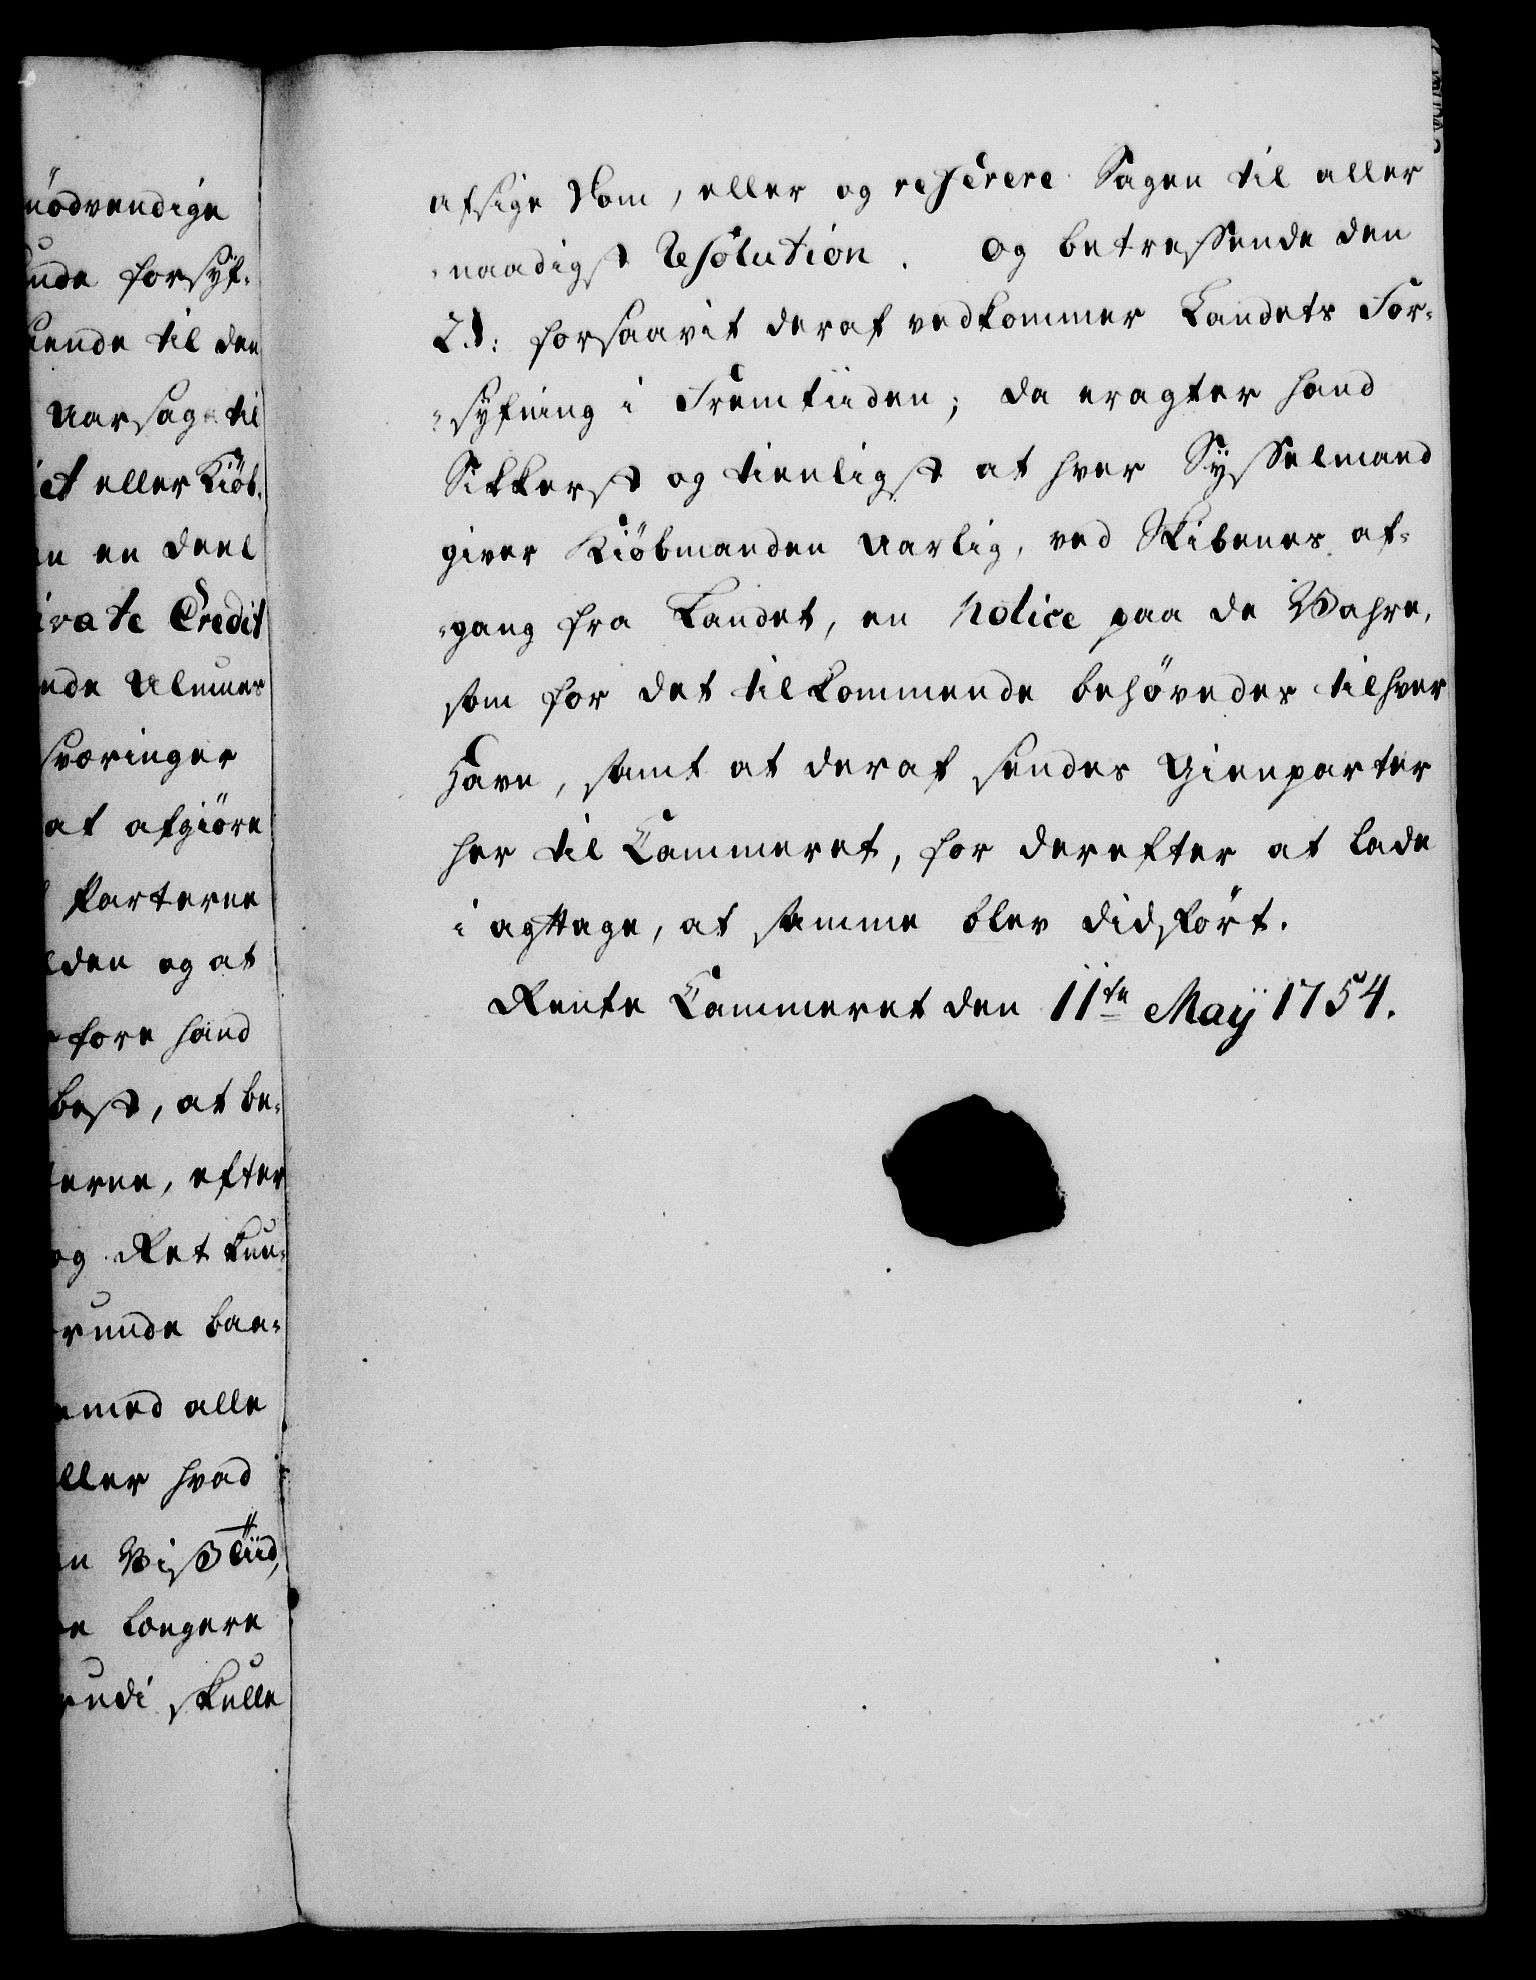 nödvendige
unde forsÿf-
kende til den
Aarsag til
iet eller Kiöb-
en en Deel
ivate Credit
ende Ulemer
sværinger
at afgiöre
Parterne
lden og at
fore hand
best, at be-
terne, efter
og Ret kun-
runde baa-
emed alle
eller hvad
en Viß Tiid,
re længere
undi skulle
afsige Dom, eller og referere Sagen til aller
-naadigst Resolution. Og betreffende den
2.d: forsaavit deraf vedkommer Landets For-
-syfning i Fremtiiden; da eragter hand
Sikkerst og tienligst at hver Sysselmand
giver Kiöbmanden Aarlig, ved Skibenes af-
-gang fra Landet, en Notice paa de Wahre,
som for det tilkommende behøvedes tilhver
Havn, samt at deraf sendes Gienparter
her til Cammeret, for derefter at lade
i agttage, at samme blev didfört.
Rente Cammeret den 11te Maÿ 1754.